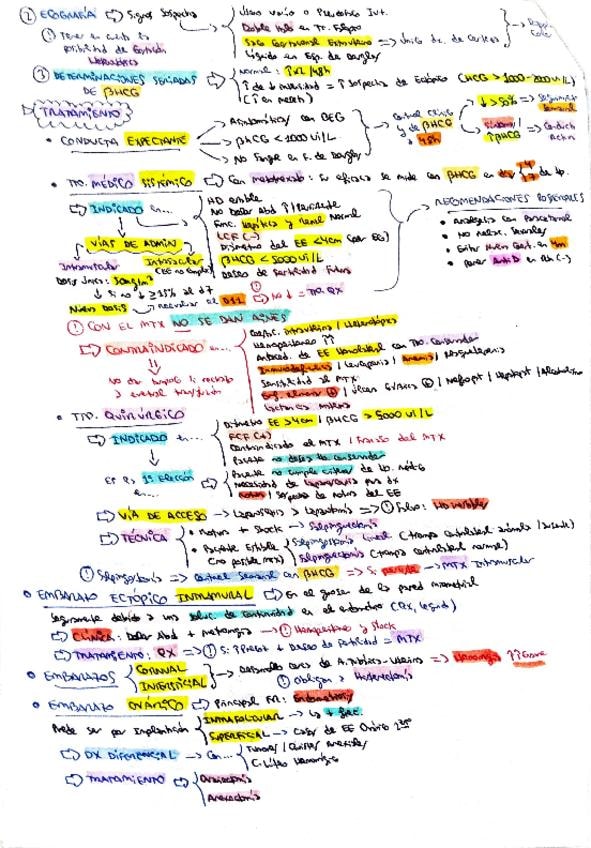 ② ECOGRAFÍA ⇨ Signos Sospecha
Útero vacío o Pseudosaco Int.
Doble halo en Tr. Falopio
Saco Gestacional Extrauterino ⇒ Único dx. de certeza
Líquido en Esp. de Douglas
① Tener en cuenta la
posibilidad de Gestación
Heterotópica
Doppler
Color
③ DETERMINACIONES SERIADAS
DE βHCG
Normal: ↑x2/48h
↑ de ↓ intensidad = ↑ Sospecha de Ectópico (HCG > 1000-2000 UI/L)
TRATAMIENTO
• CONDUCTA EXPECTANTE
Asintomática / con BEG
βHCG < 1000 UI/L
No Sangre en F. de Douglas
Control Clínico
y de βHCG
48h
↓ > 50% ⇒ Seguimiento
Semanal
Síntomas /
↑ βHCG ⇒ Conducta
Activa
• TTO. MÉDICO SISTÉMICO ⇨ Con metotrexato: Su eficacia se mide con βHCG en días 4 y 7
⇨ INDICADO en...
HD estable
No Dolor Abd ↑ / Persistente
Func. Hepática y Renal Normal
LCF (-)
Diámetro del EE < 4cm (por Eco)
βHCG < 5000 UI/L
Deseo de Fertilidad Futura
VÍAS DE ADMIN
Intramuscular
Intrasacular
Dosis única: 50mg/m²
↓ Si no ↓ ≥ 15% al d7
Nueva Dosis → reevaluar al D11
① → No ↓ = TTO. QX
RECOMENDACIONES POSTERIORES
• Analgesia con Paracetamol
• No relac. Sexuales
• Evitar Nueva Gest. en 4m
• poner Anti D en Rh (-)
① CON EL MTX NO SE DAN AINES
⇨ CONTRAINDICADO en...
Coexist. intrauterina / Heterotópica
Hemoperitoneo ↑↑
Anteced. de EE Homolateral con Tto. Conservador
Inmunodeficiencia / Leucopenia / Anemia / Trombopenia
Sensibilidad al MTX
Enf. Pulmonar / Úlcera Gástrica / Nefropat / Hepatopat / Alcoholismo
Lactancia Materna
• TTO. QUIRÚRGICO
⇨ INDICADO en...
Diámetro EE > 4cm / βHCG > 5000 UI/L
FCF (+)
Contraindicado el MTX / Fracaso del MTX
Paciente no desea tto. conservador
Es de 1ª Elección
en...
Paciente no cumple criterios de tto. médico
Necesidad de laparoscopia por dx
Rotura / Sospecha de rotura del EE
⇨ VÍA DE ACCESO → Laparoscopia > Laparotomía ⇒ ① Salvo: HD inestable
⇨ TÉCNICA
• Rotura + Shock → Salpinguectomía
• Paciente Estable
(no posible mtx)
Salpingostomía Lineal (trompa contralateral anómala / ausente)
Salpinguectomía (trompa contralateral normal)
① Salpingostomía ⇒ Control Semanal con βHCG ⇒ Si persiste → MTX Intramuscular
• EMBARAZO ECTÓPICO INTRAMURAL ⇨ En el grosor de la pared miometrial
Seguramente debido a una soluc. de continuidad en el endometrio (Qx, Legrado)
⇨ CLÍNICA: Dolor Abd + metrorragia → ① Hemoperitoneo y Shock
⇨ TRATAMIENTO: QX ⇒ ① Si ↑Precoz + Deseo de fertilidad = MTX
• EMBARAZOS
CORNUAL
INTERSTICIAL
→ Desarrollo cerca de A. Tubárica-Uterina ⇒ Hemorragia ↑↑ Grave
① Obligan a Histerectomía
• EMBARAZO OVÁRICO ⇨ Principal FR: Endometriosis
Puede ser por Implantación
INTRAFOLICULAR → La + frec.
SUPERFICIAL → Casos de EE Ovárico 1ario
⇨ DX DIFERENCIAL → Con...
Tumores / Quistes Anexiales
C. Lúteo Hemorrágico
⇨ TRATAMIENTO ⇨
Ovariectomía
Anexectomía